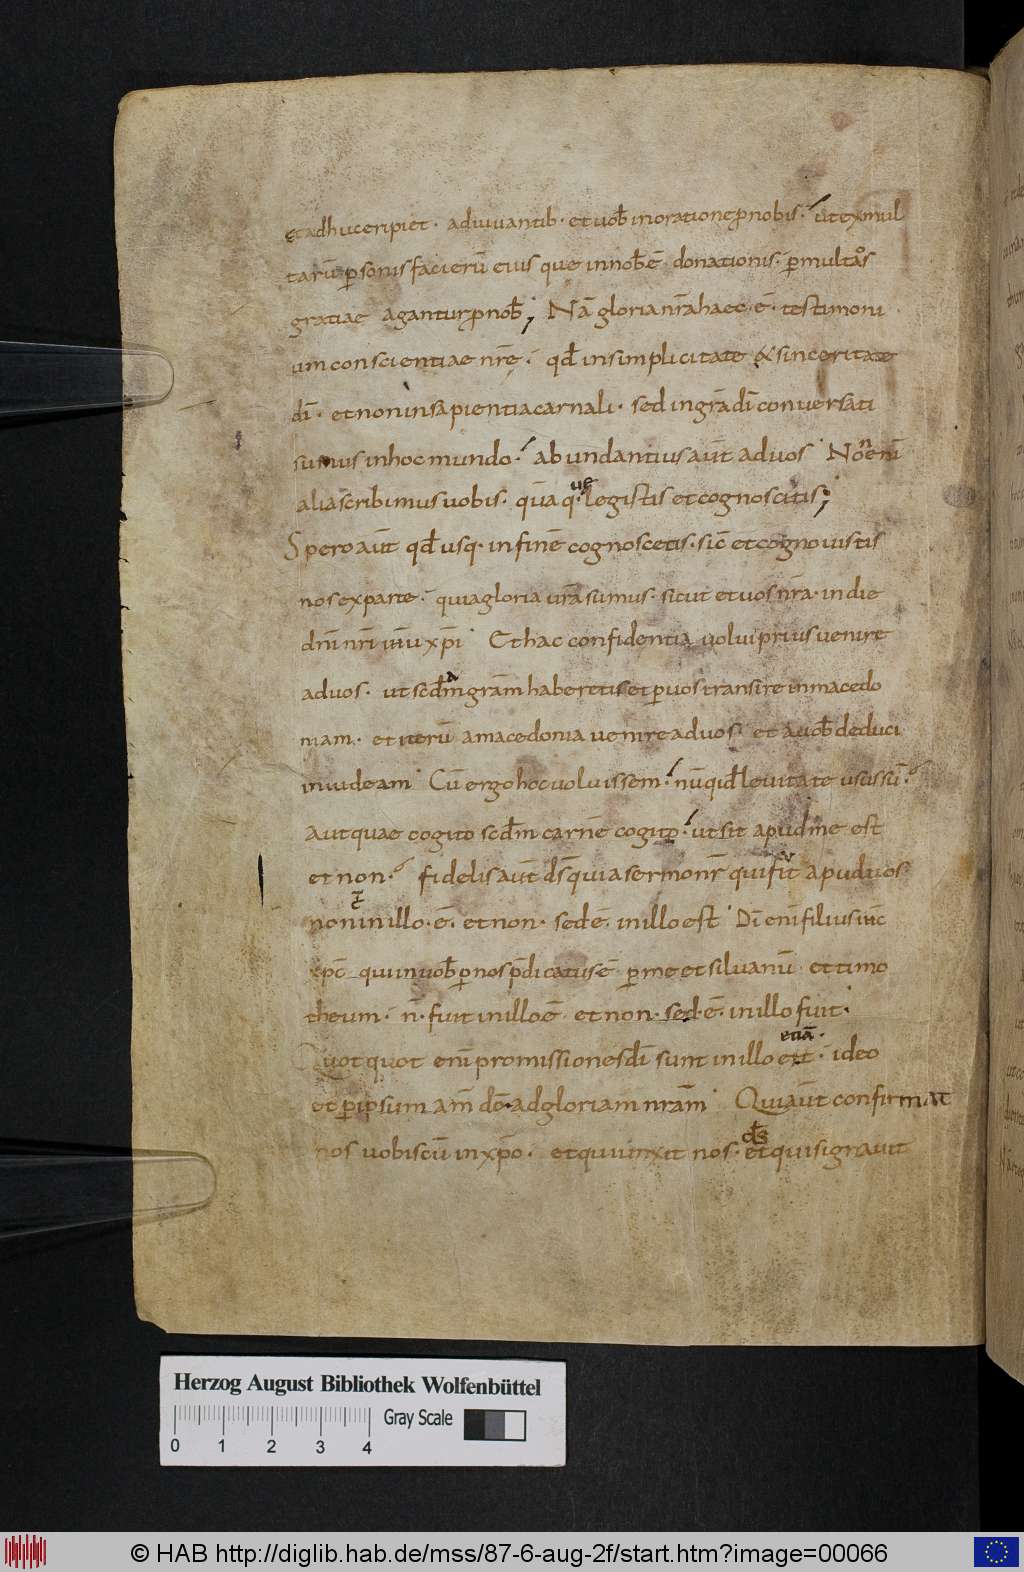 et adhuc eripiet · adiuuantib · et uob̄ in oratione ꝓ nobis · ut ex mul
tarū ꝑsonis facierū eius que in nob̄ ē donationis · ꝑ multos
gratiae agantur ꝓ nob̄ ; Nā gloria nr̄a haec · ē · testimoni
um conscientiae nr̄ę · qd̄ in simplicitate & sinceritate
dī · et non in sapientia carnali · sed in gr̄a dī conuersati
sumus in hoc mundo · abundantius aūt ad uos · Non enī
alia scribimus uobis · quā que legistis et cognoscitis ;
Spero aūt qd̄ usq · in finē cognoscetis · sic̄ et cognouistis
nos ex parte · quia gloria ur̄a sumus · sicut et uos nr̄a · in die
dn̄i nr̄i ih̄u xp̄i · Et hac confidentia uolui prius uenire
ad uos · ut scd̄am gr̄am haberetis et ꝑ uos transire in macedo
niam · et iterū a macedonia uenire ad uos · et a uob̄ deduci
in iudeam · Cū ergo hoc uoluissem · nūqid leuitate usus sū ·
Aut quae cogito scd̄m carnē cogito · ut sit apud me est
et non · fidelis aūt ds̄ quia sermo nr̄ qui fuit apud uos
non in illo · ē · et non · sed ē · in illo est · Dī enī filius ih̄c
xp̄c qui in uob̄ ꝑ nos p̄dicatus ē ꝑ me et siluanū et timo
theum · n̄ · fuit in illo ē et non · sed · ē · in illo fuit ·
Quot quot enī promissiones dī sunt in illo est · etiā · ideo
et ꝑ ipsum am̄ dē · ad gloriam nr̄am · Qui aūt confirmat
nos uobiscū in xp̄o · et qui unxit nos · ds̄ et qui signauit
Herzog August Bibliothek Wolfenbüttel
Gray Scale
0 1 2 3 4
© HAB http://diglib.hab.de/mss/87-6-aug-2f/start.htm?image=00066